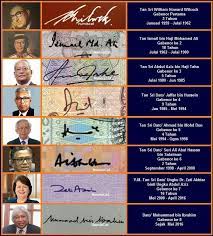 Tan Sri William Howard Wilcock
Gabenor Pertama
3 Tahun
Januari 1959 - Julai 1962
Tun Ismail bin Haji Mohamed Ali
Gabenor ke 2
18 Tahun
Julai 1962 - Julai 1980
Tan Sri Abdul Aziz bin Haji Taha
Gabenor ke 3
5 Tahun
Julai 1980 - Jun 1985
Tan Sri Dato' Jaffar bin Hussein
Gabenor ke 4
9 Tahun
Jun 1985 - Mei 1994
Tan Sri Dato' Ahmad bin Mohd Don
Gabenor ke 5
4 Tahun
Mei 1994 - Ogos 1998
Tan Sri Dato' Seri Ali Abul Hassan
bin Sulaiman
Gabenor ke 6
2 Tahun
September 1998 - April 2000
YM. Tan Sri Dato' Sri Dr. Zeti Akhtar
binti Ungku Abdul Aziz
Gabenor ke 7
16 Tahun
Mei 2000 - April 2016
Dato' Muhammad bin Ibrahim
Gabenor ke 8
Sejak Mei 2016
Ismail Md. Ali
Muhammad bin Ibrahim